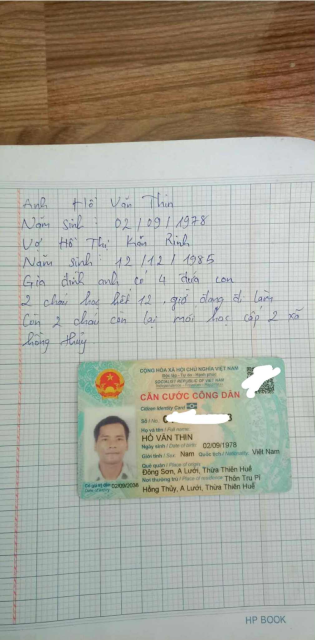 Anh Hồ Văn Thin
Năm sinh: 02/09/1978
Vợ Hồ Thị Kăn Rinh
Năm sinh 12/12/1985
Gia đình anh có 4 đứa con
2 cháu học hết 12. giờ đang đi làm
Còn 2 cháu còn lại mới học cấp 2 xã
hồng thủy
CỘNG HÒA XÃ HỘI CHỦ NGHĨA VIỆT NAM
Độc lập - Tự do - Hạnh phúc
SOCIALIST REPUBLIC OF VIET NAM
CĂN CƯỚC CÔNG DÂN
Citizen Identity Card
Số / No.
Họ và tên / Full name:
HỒ VĂN THIN
Ngày sinh / Date of birth: 02/09/1978
Giới tính / Sex: Nam Quốc tịch / Nationality: Việt Nam
Quê quán / Place of origin:
Đông Sơn, A Lưới, Thừa Thiên Huế
Nơi thường trú / Place of residence: Thôn Tru Pỉ
Hồng Thủy, A Lưới, Thừa Thiên Huế
Có giá trị đến: 02/09/2038
Date of expiry
HP BOOK